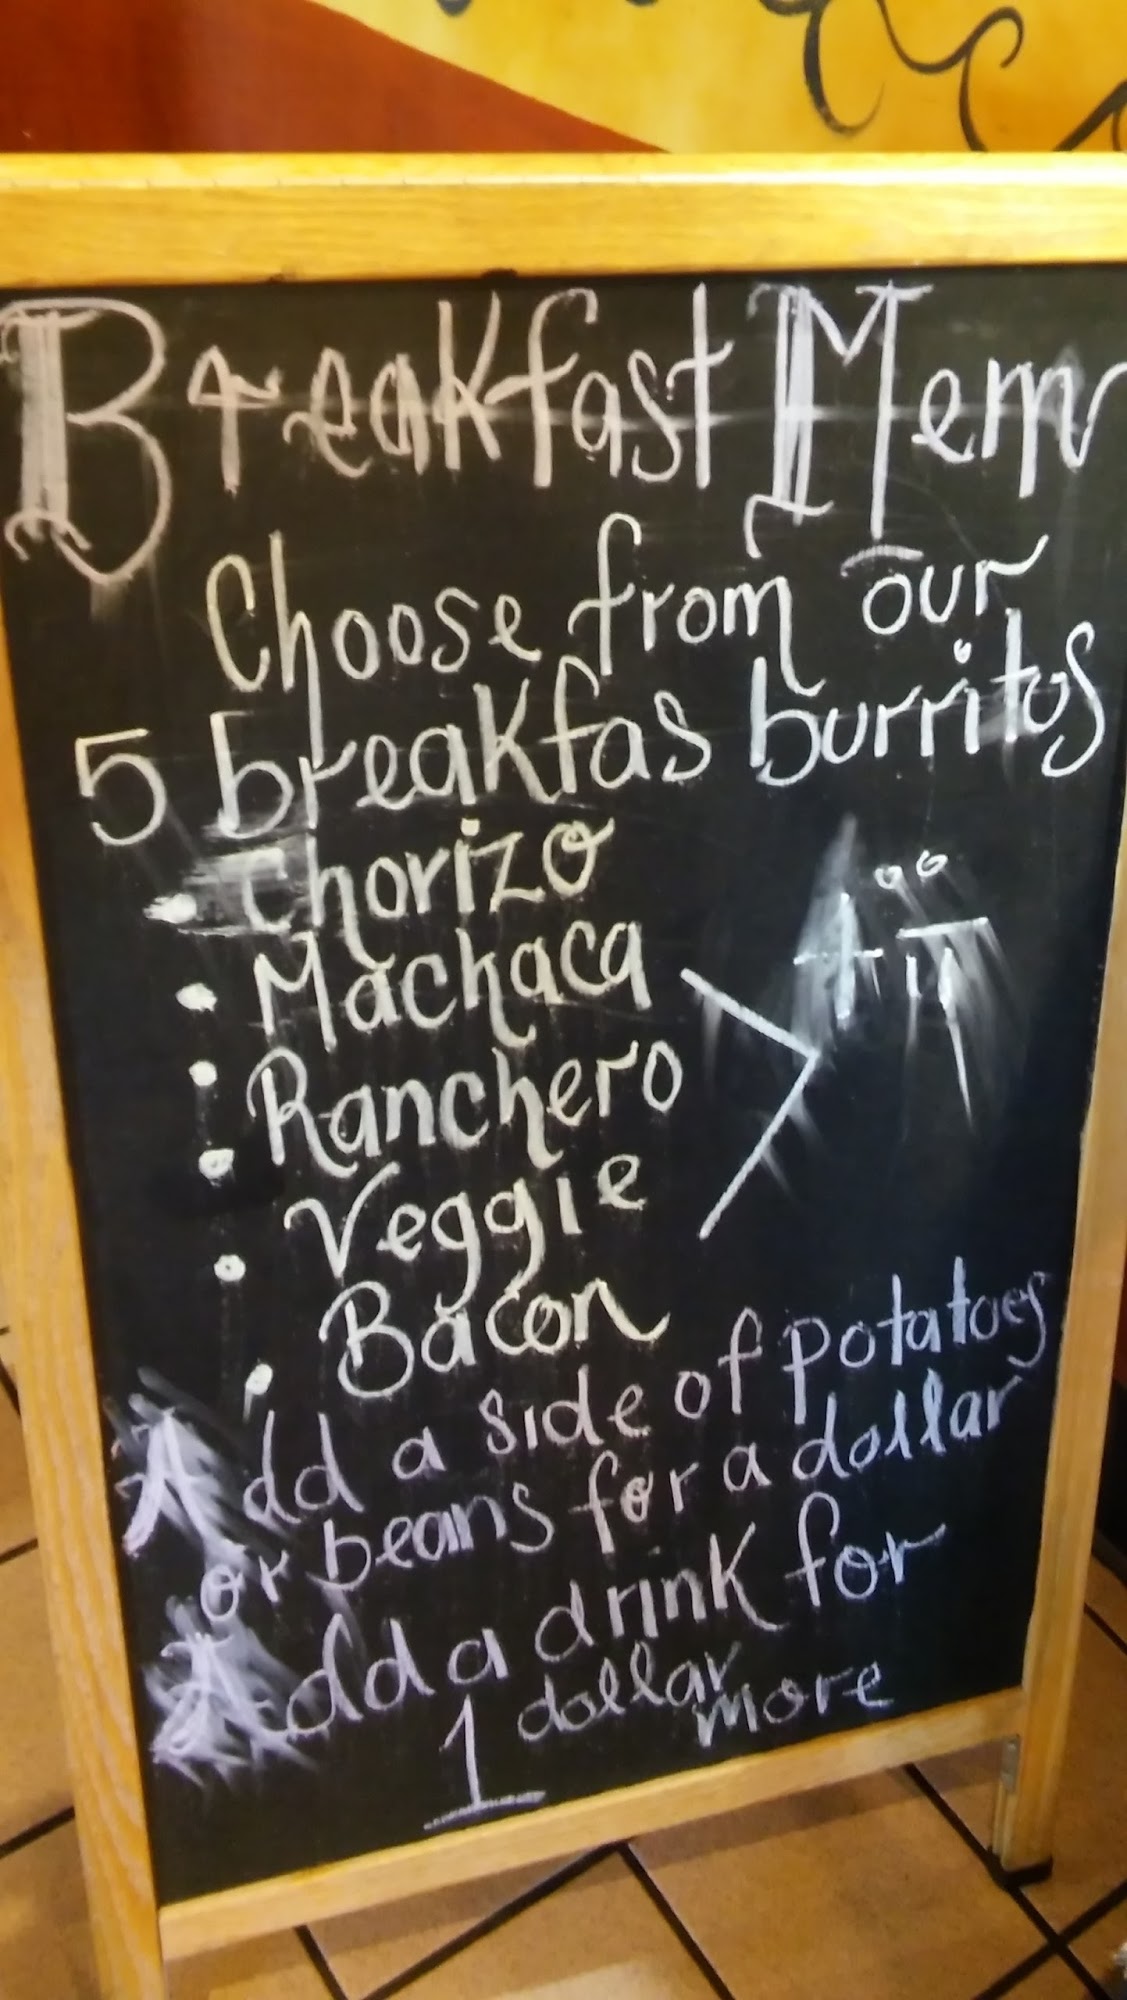 Breakfast Menu
Choose from our
5 breakfas burritos
• Chorizo
• Machaca
• Ranchero
• Veggie
• Bacon
•
Add a side of potatoes
or beans for a dollar
Add a drink for
1 dollar
more